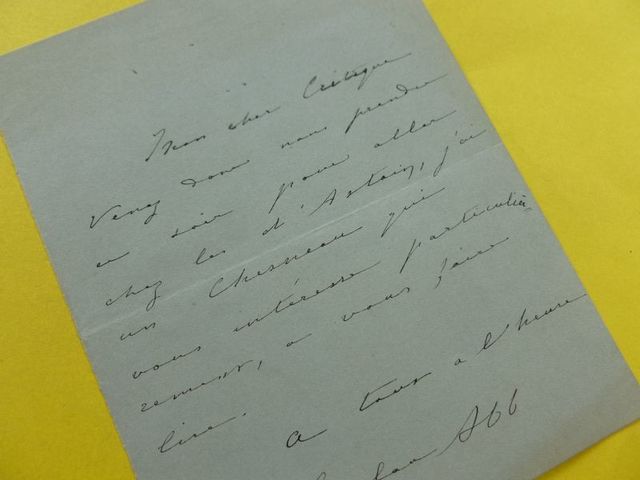 Mon cher Critique
Venez donc nous prendre
ce soir pour aller
chez les d'Astoin, j'ai
un Chesneau qui
vous intéresse particuliè
rement, a vous faire
lire.
a tous a l'heure
Abb